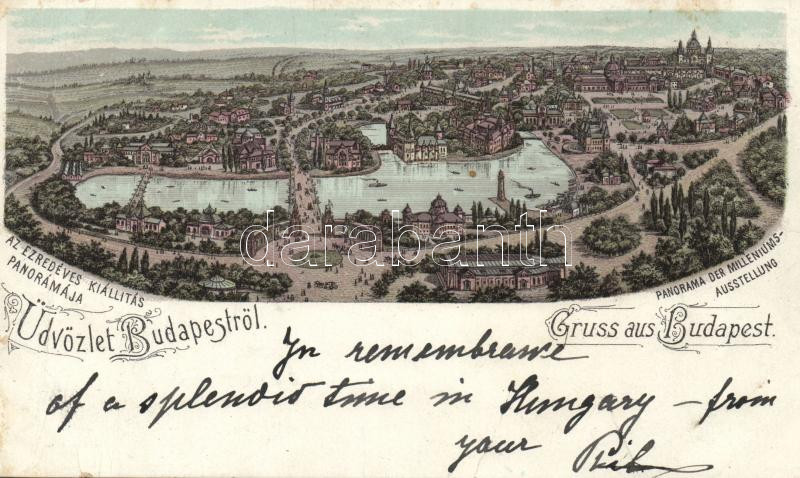 darabanth
AZ EZREDÉVES KIÁLLITÁS
PANORÁMÁJA
PANORAMA DER MILLENIUMS-
AUSSTELLUNG
Üdvözlet Budapestről.
Gruss aus Budapest.
In remembrance
of a splendid time in Hungary – from
your Phil